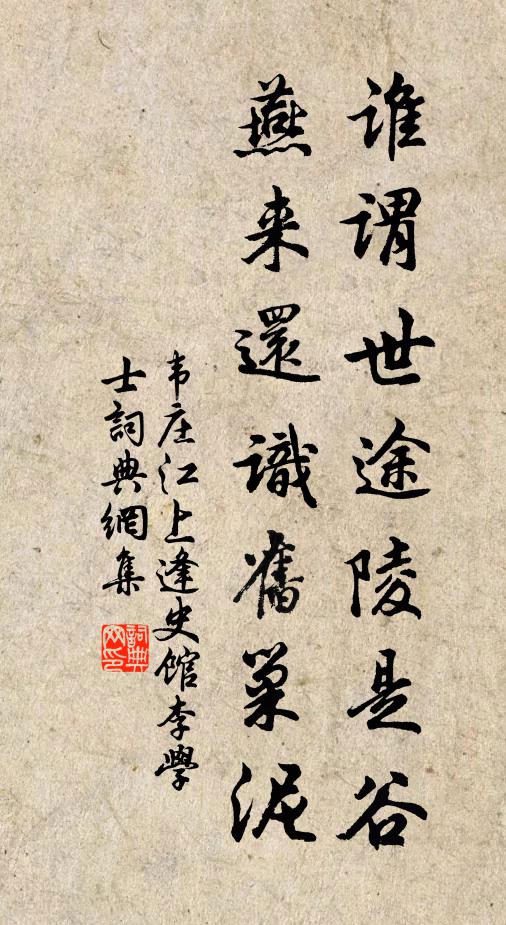 谁谓世途陵是谷
燕来還識舊巢泥
韦庄江上逢史馆李學
士詞典網集
詞典网印